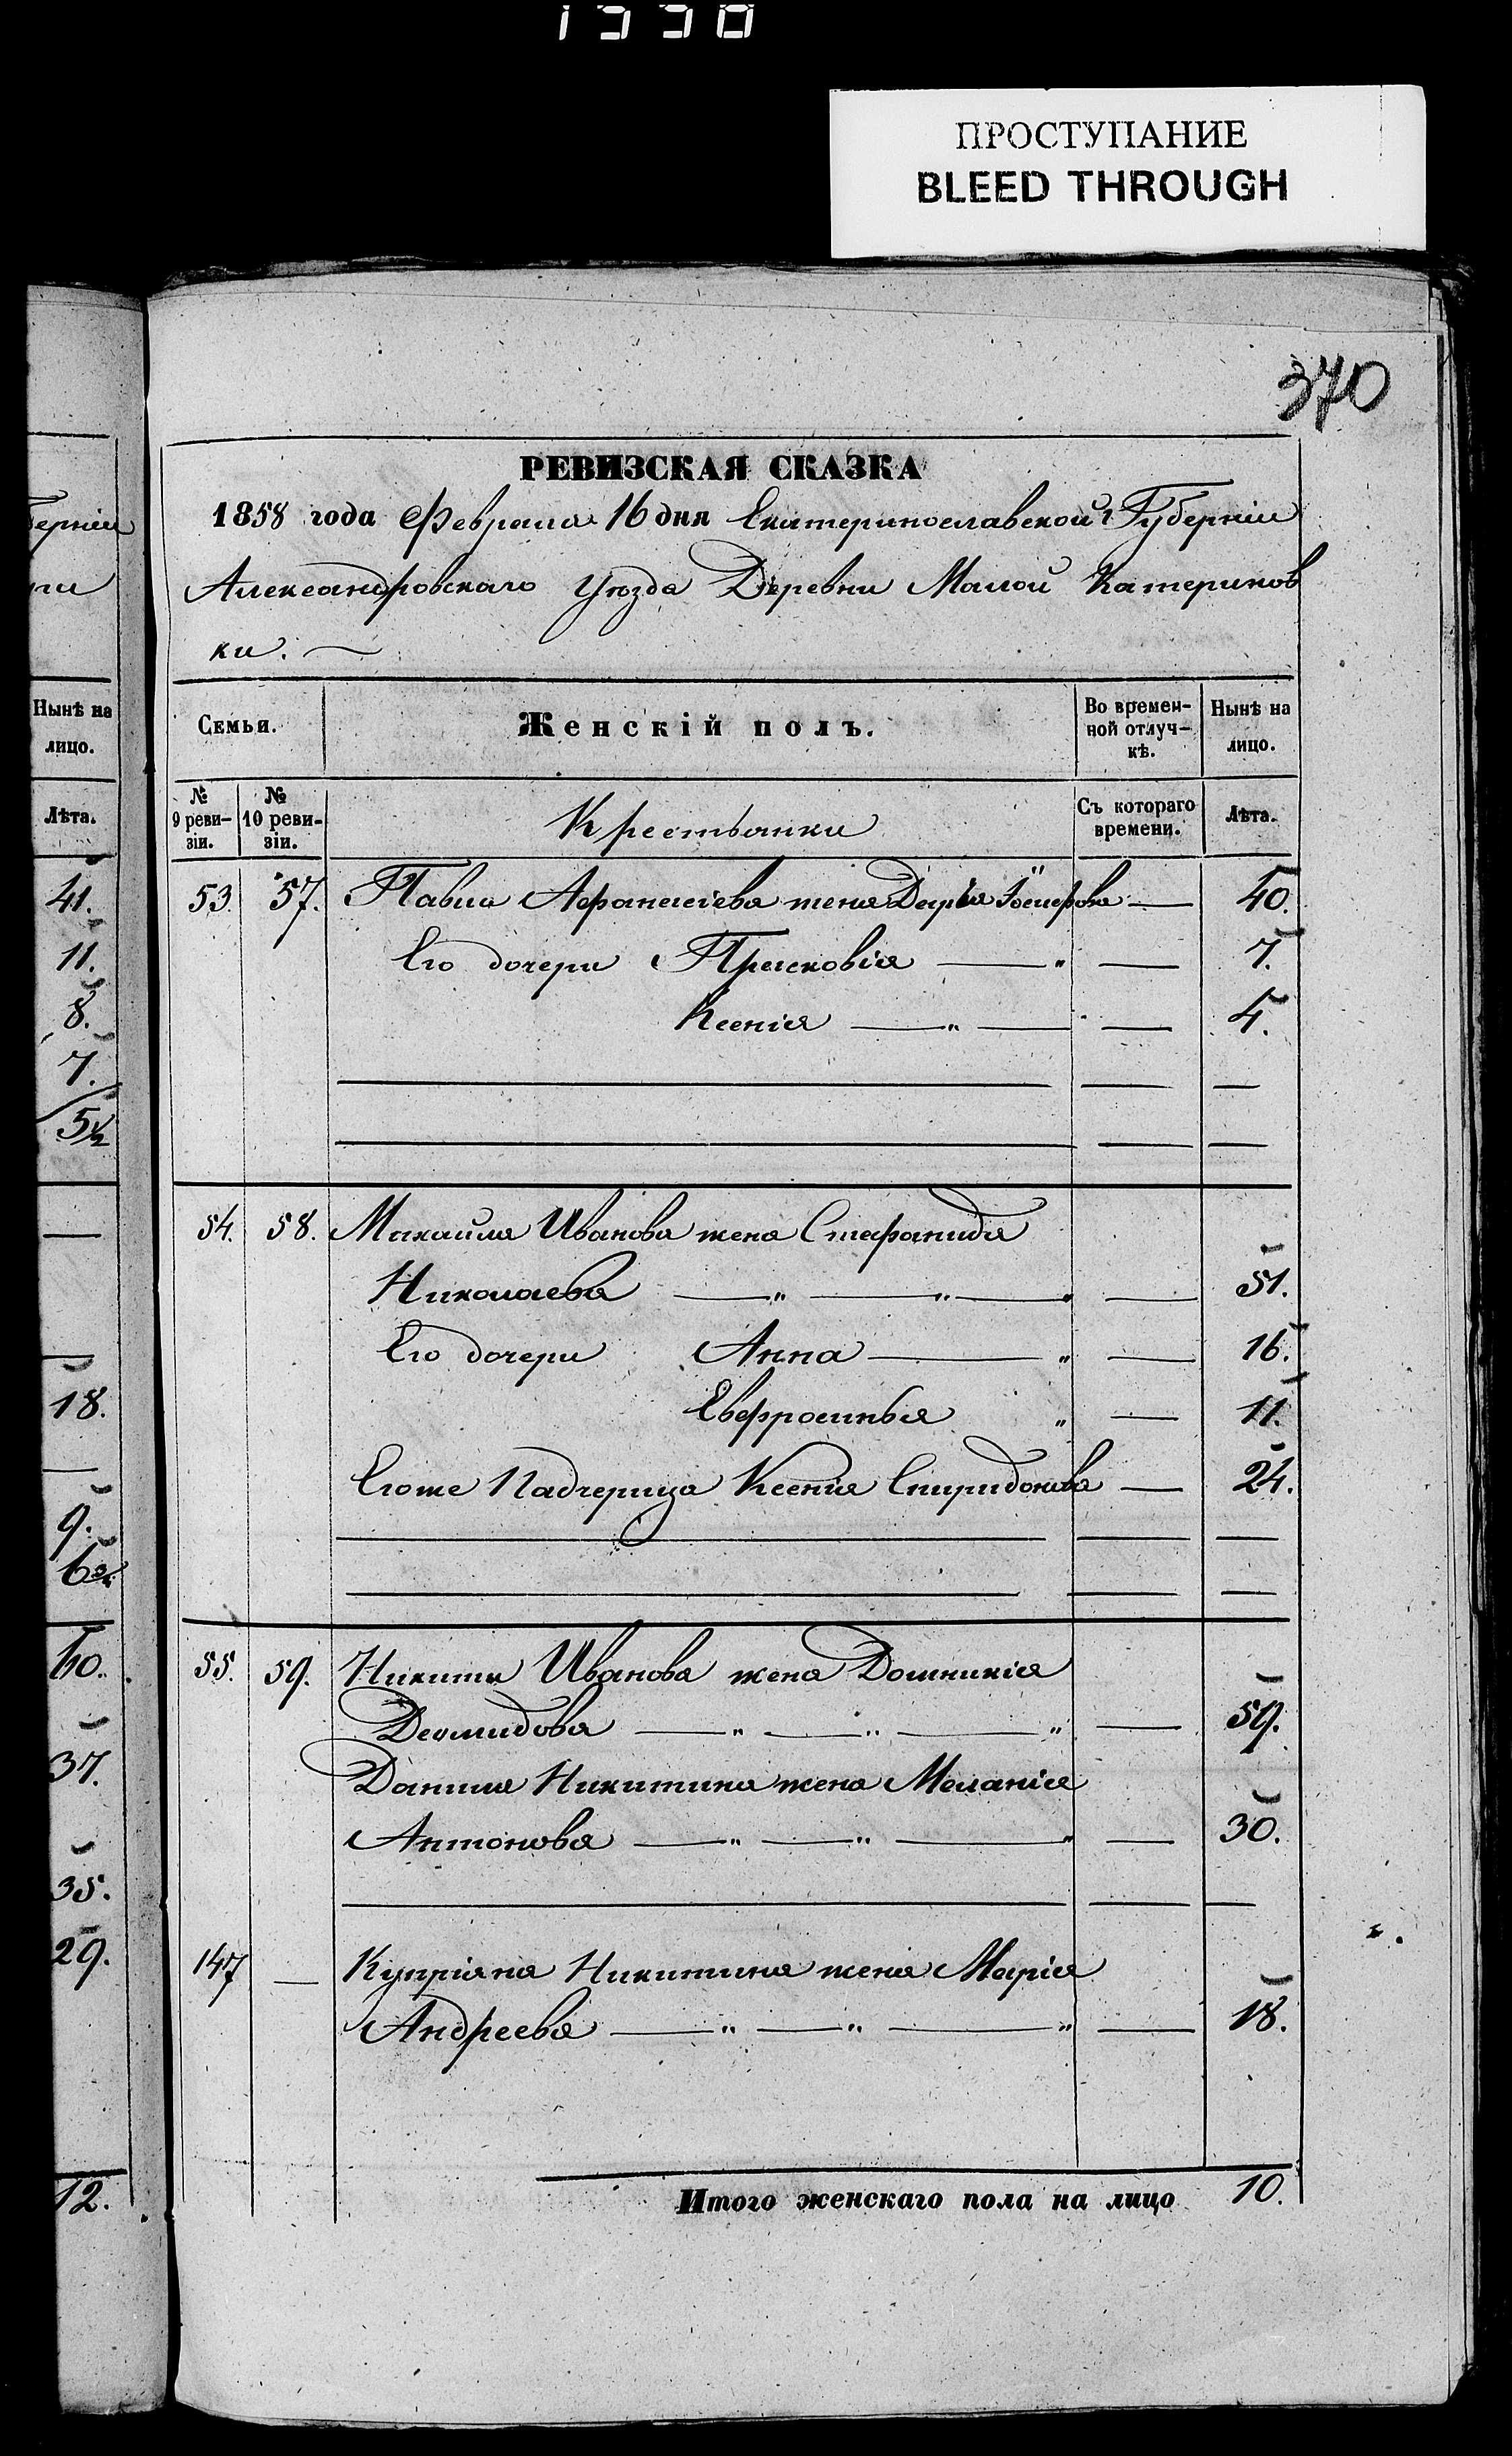 1330
ПРОСТУПАНИЕ
BLEED THROUGH
370
РЕВИЗСКАЯ СКАЗКА
1858 года Февраля 16 дня Екатеринославской Губерніи
Александровскаго Уѣзда Деревни Малой Катеринов
ки.
Семьи. Женскій полъ. Во времен- ной отлуч- кѣ. Нынѣ на лицо.
№ 9 реви- зіи. № 10 реви- зіи. Крестьянки Съ котораго времени. Лѣта.
53. 57. Павла Афанасіева жена Дарья — 40.
Его дочери Прасковія — " — 7.
Ксенія — " — — 4.
54. 58. Михайла Иванова жена Стефанида
Николаева — " — " — " — 51.
Его дочери Анна — " — 16.
Евфросинья " — 11.
Егоже Падчерица Ксенія Спиридонова — 24.
55. 59. Никиты Иванова жена Домникія
Деомидова — " — " — " — 59.
Данила Никитина жена Меланія
Антонова — " — " — " — 30.
147 — Купріяна Никитина жена Марія
Андреева — " — " — " — 18.
Итого женскаго пола на лицо 10.
Нынѣ на
лицо.
Лѣта.
41.
11.
8.
7.
5½
18.
9.
60.
37.
35.
29.
12.